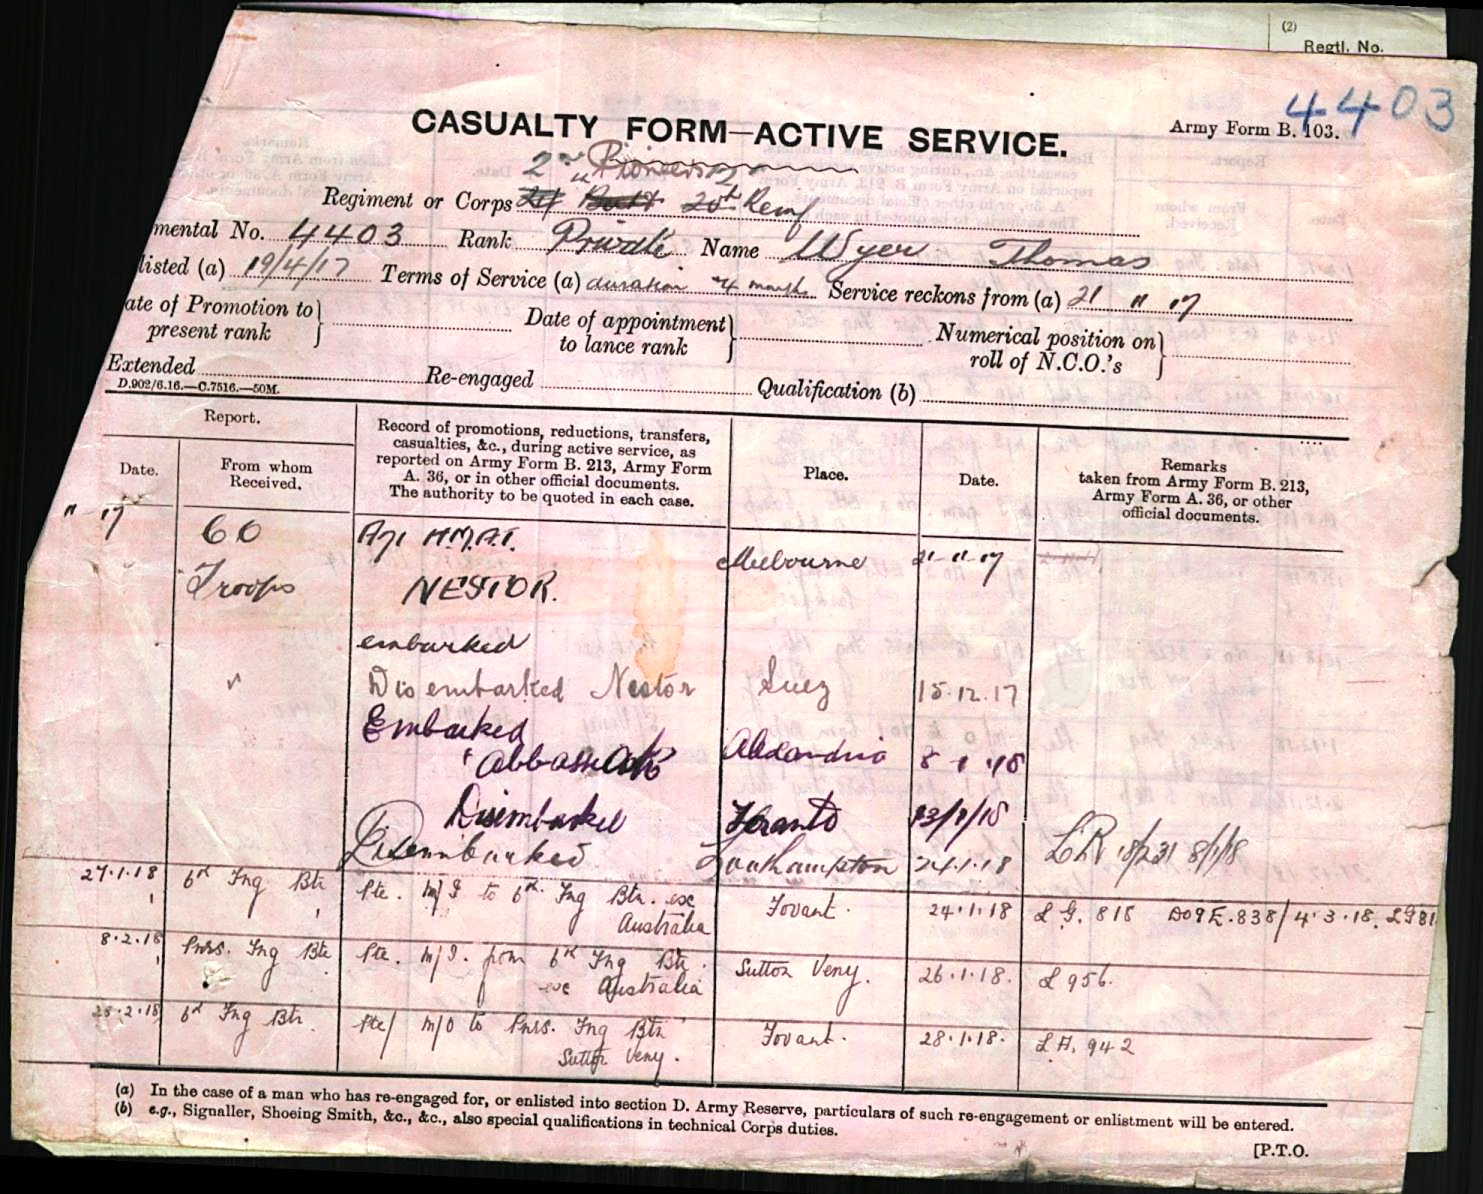 (2)
Regtl. No.
4403
CASUALTY FORM—ACTIVE SERVICE.
Army Form B. 103.
2nd Pioneers
Regiment or Corps 24 Battn 20th Reinf
mental No. 4403 Rank Private Name Wyer Thomas
listed (a) 19/4/17 Terms of Service (a) duration 4 months Service reckons from (a) 21 11 17
ate of Promotion to present rank } Date of appointment to lance rank } Numerical position on roll of N.C.O.'s }
Extended Re-engaged Qualification (b)
D.902/6.16.—C.7516.—50M.
Report.
Date.
From whom Received.
Record of promotions, reductions, transfers, casualties, &c., during active service, as reported on Army Form B. 213, Army Form A. 36, or in other official documents. The authority to be quoted in each case.
Place.
Date.
Remarks taken from Army Form B. 213, Army Form A. 36, or other official documents.
" 17 CO Troops A71 H.M.A.T. NESTOR. embarked Melbourne 21-11-17
Disembarked Nestor Suez 15.12.17
Embarked Alexandria 8-1-18
Disembarked Taranto
Disembarked Southampton 24.1.18
27.1.18 6th Tng Btn Pte. M/I to 6th Tng Btn. exc Australia Fovant. 24.1.18 L.G. 818
8.2.18 Pnrs. Tng Btn Pte. M/I. from 6th Tng Btn. exc Australia Sutton Veny. 26.1.18. L 956.
25.2.18 6th Tng Btn. Pte/ M/O to Pnrs. Tng Btn Sutton Veny. Fovant. 28.1.18. 942
(a) In the case of a man who has re-engaged for, or enlisted into section D. Army Reserve, particulars of such re-engagement or enlistment will be entered.
(b) e.g., Signaller, Shoeing Smith, &c., &c., also special qualifications in technical Corps duties.
[P.T.O.